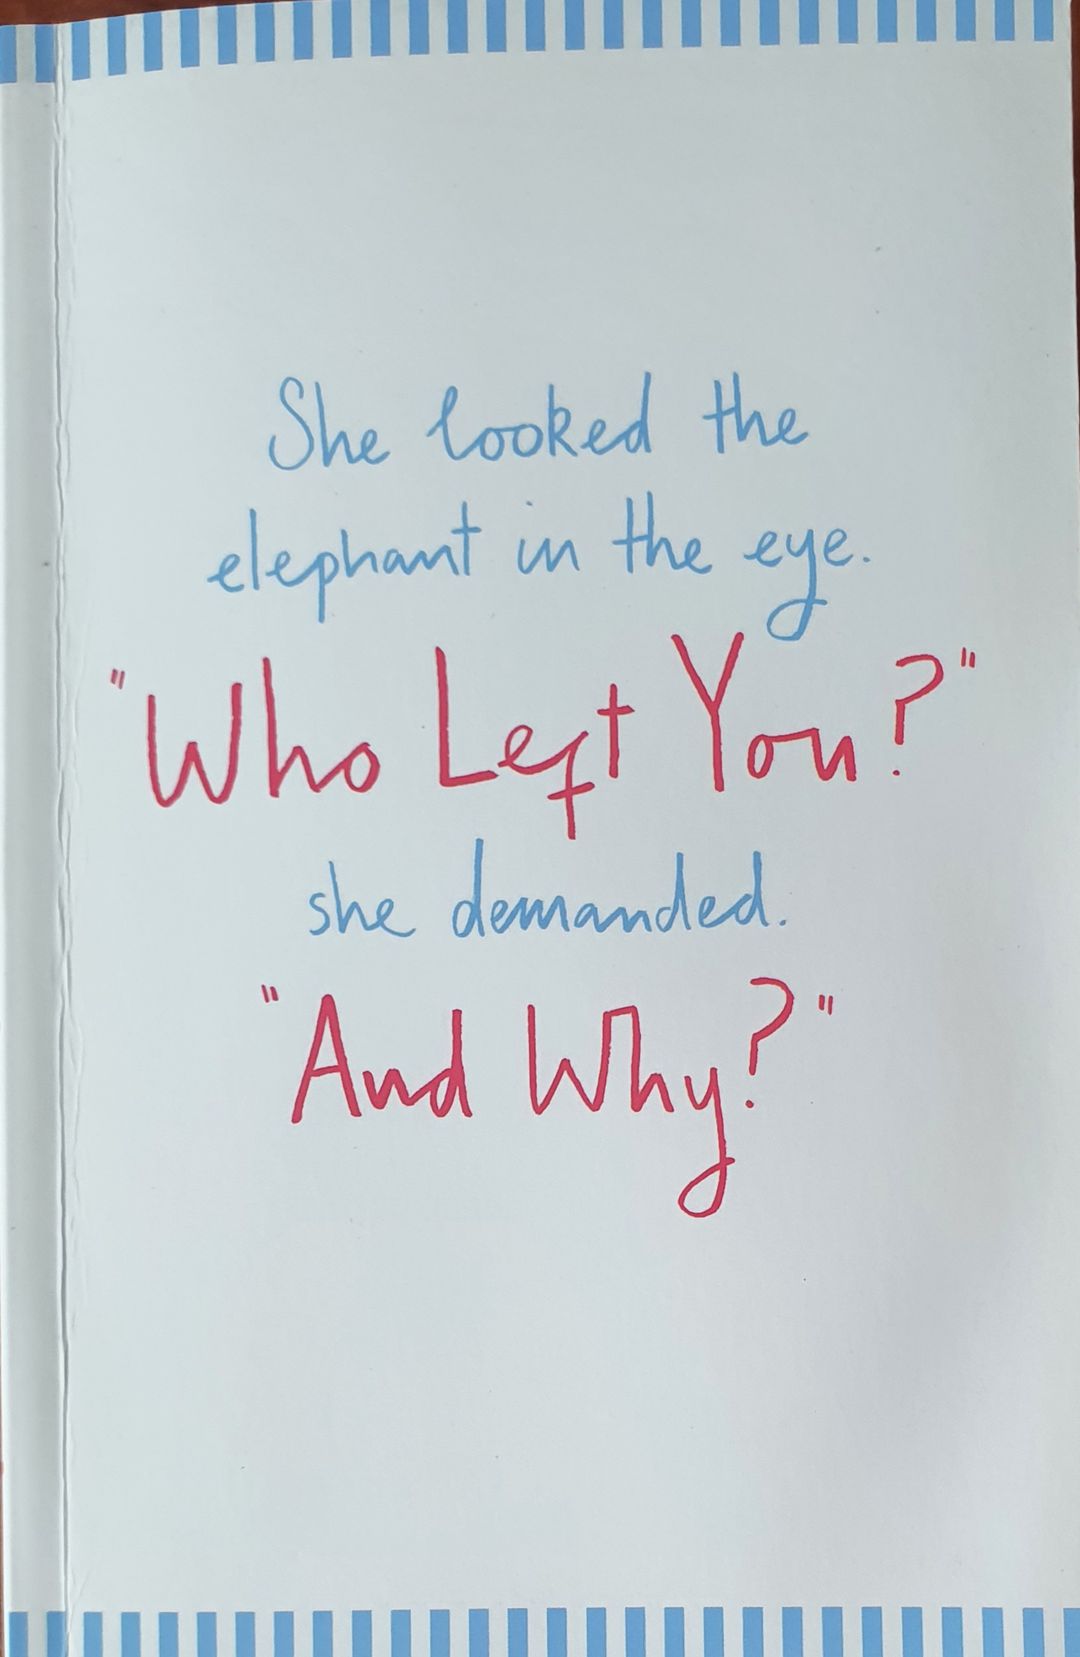 She looked the
elephant in the eye.
"Who Left You?"
she demanded.
"And Why?"